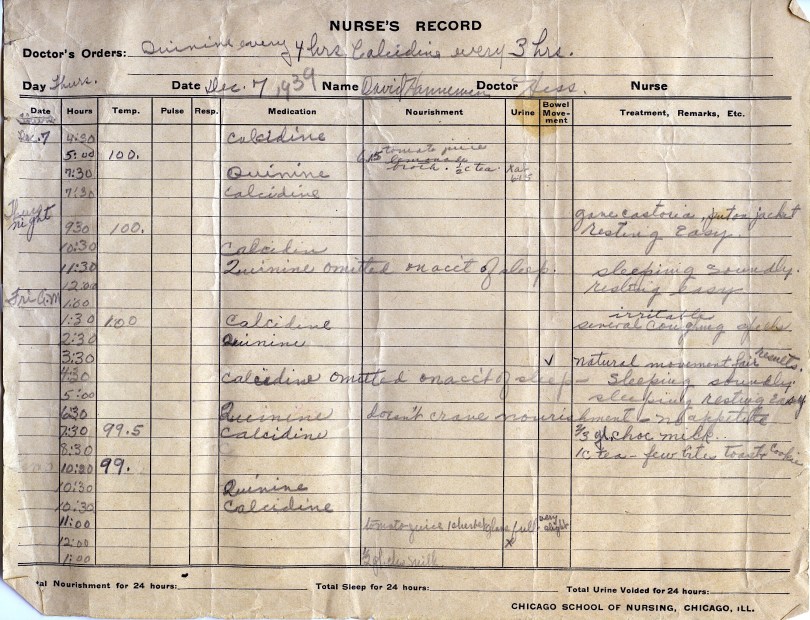 NURSE'S RECORD
Doctor's Orders: Quinine every 4 hrs. Calcidine every 3 hrs.
Day Thurs. Date Dec. 7, 1939 Name David Hanneman Doctor Hess. Nurse
Date Hours Temp. Pulse Resp. Medication Nourishment Urine Bowel Move-ment Treatment, Remarks, Etc.
Dec. 7 4:30 Calcidine
5:00 100. 6:15 tomato juice
lemonade
7:30 Quinine broth. ½c tea
7:30 Calcidine
Thurs night gave castoria, put on jacket
9:30 100. resting easy.
10:30 Calcidin
11:30 Quinine omitted on acc't of sleep. sleeping soundly.
12:00 resting easy
Fri A.M. 1:00
irritable
1:30 100 Calcidine several coughing spells
2:30 Quinine
3:30 ✓ natural movement fair results.
4:30 Calcidine omitted on acc't of sleep - Sleeping soundly.
5:00 sleeping resting easy
6:30 Quinine doesn't crave nourishment - no appetite
7:30 99.5 Calcidine ⅔ gl. choc milk..
8:30 1c tea - few bites toast & cookie
10:20 99.
10:30 Quinine
10:30 Calcidine
11:00 tomato juice full very slight
12:00 x
1:00 milk
al Nourishment for 24 hours: Total Sleep for 24 hours: Total Urine Voided for 24 hours:
CHICAGO SCHOOL OF NURSING, CHICAGO, ILL.